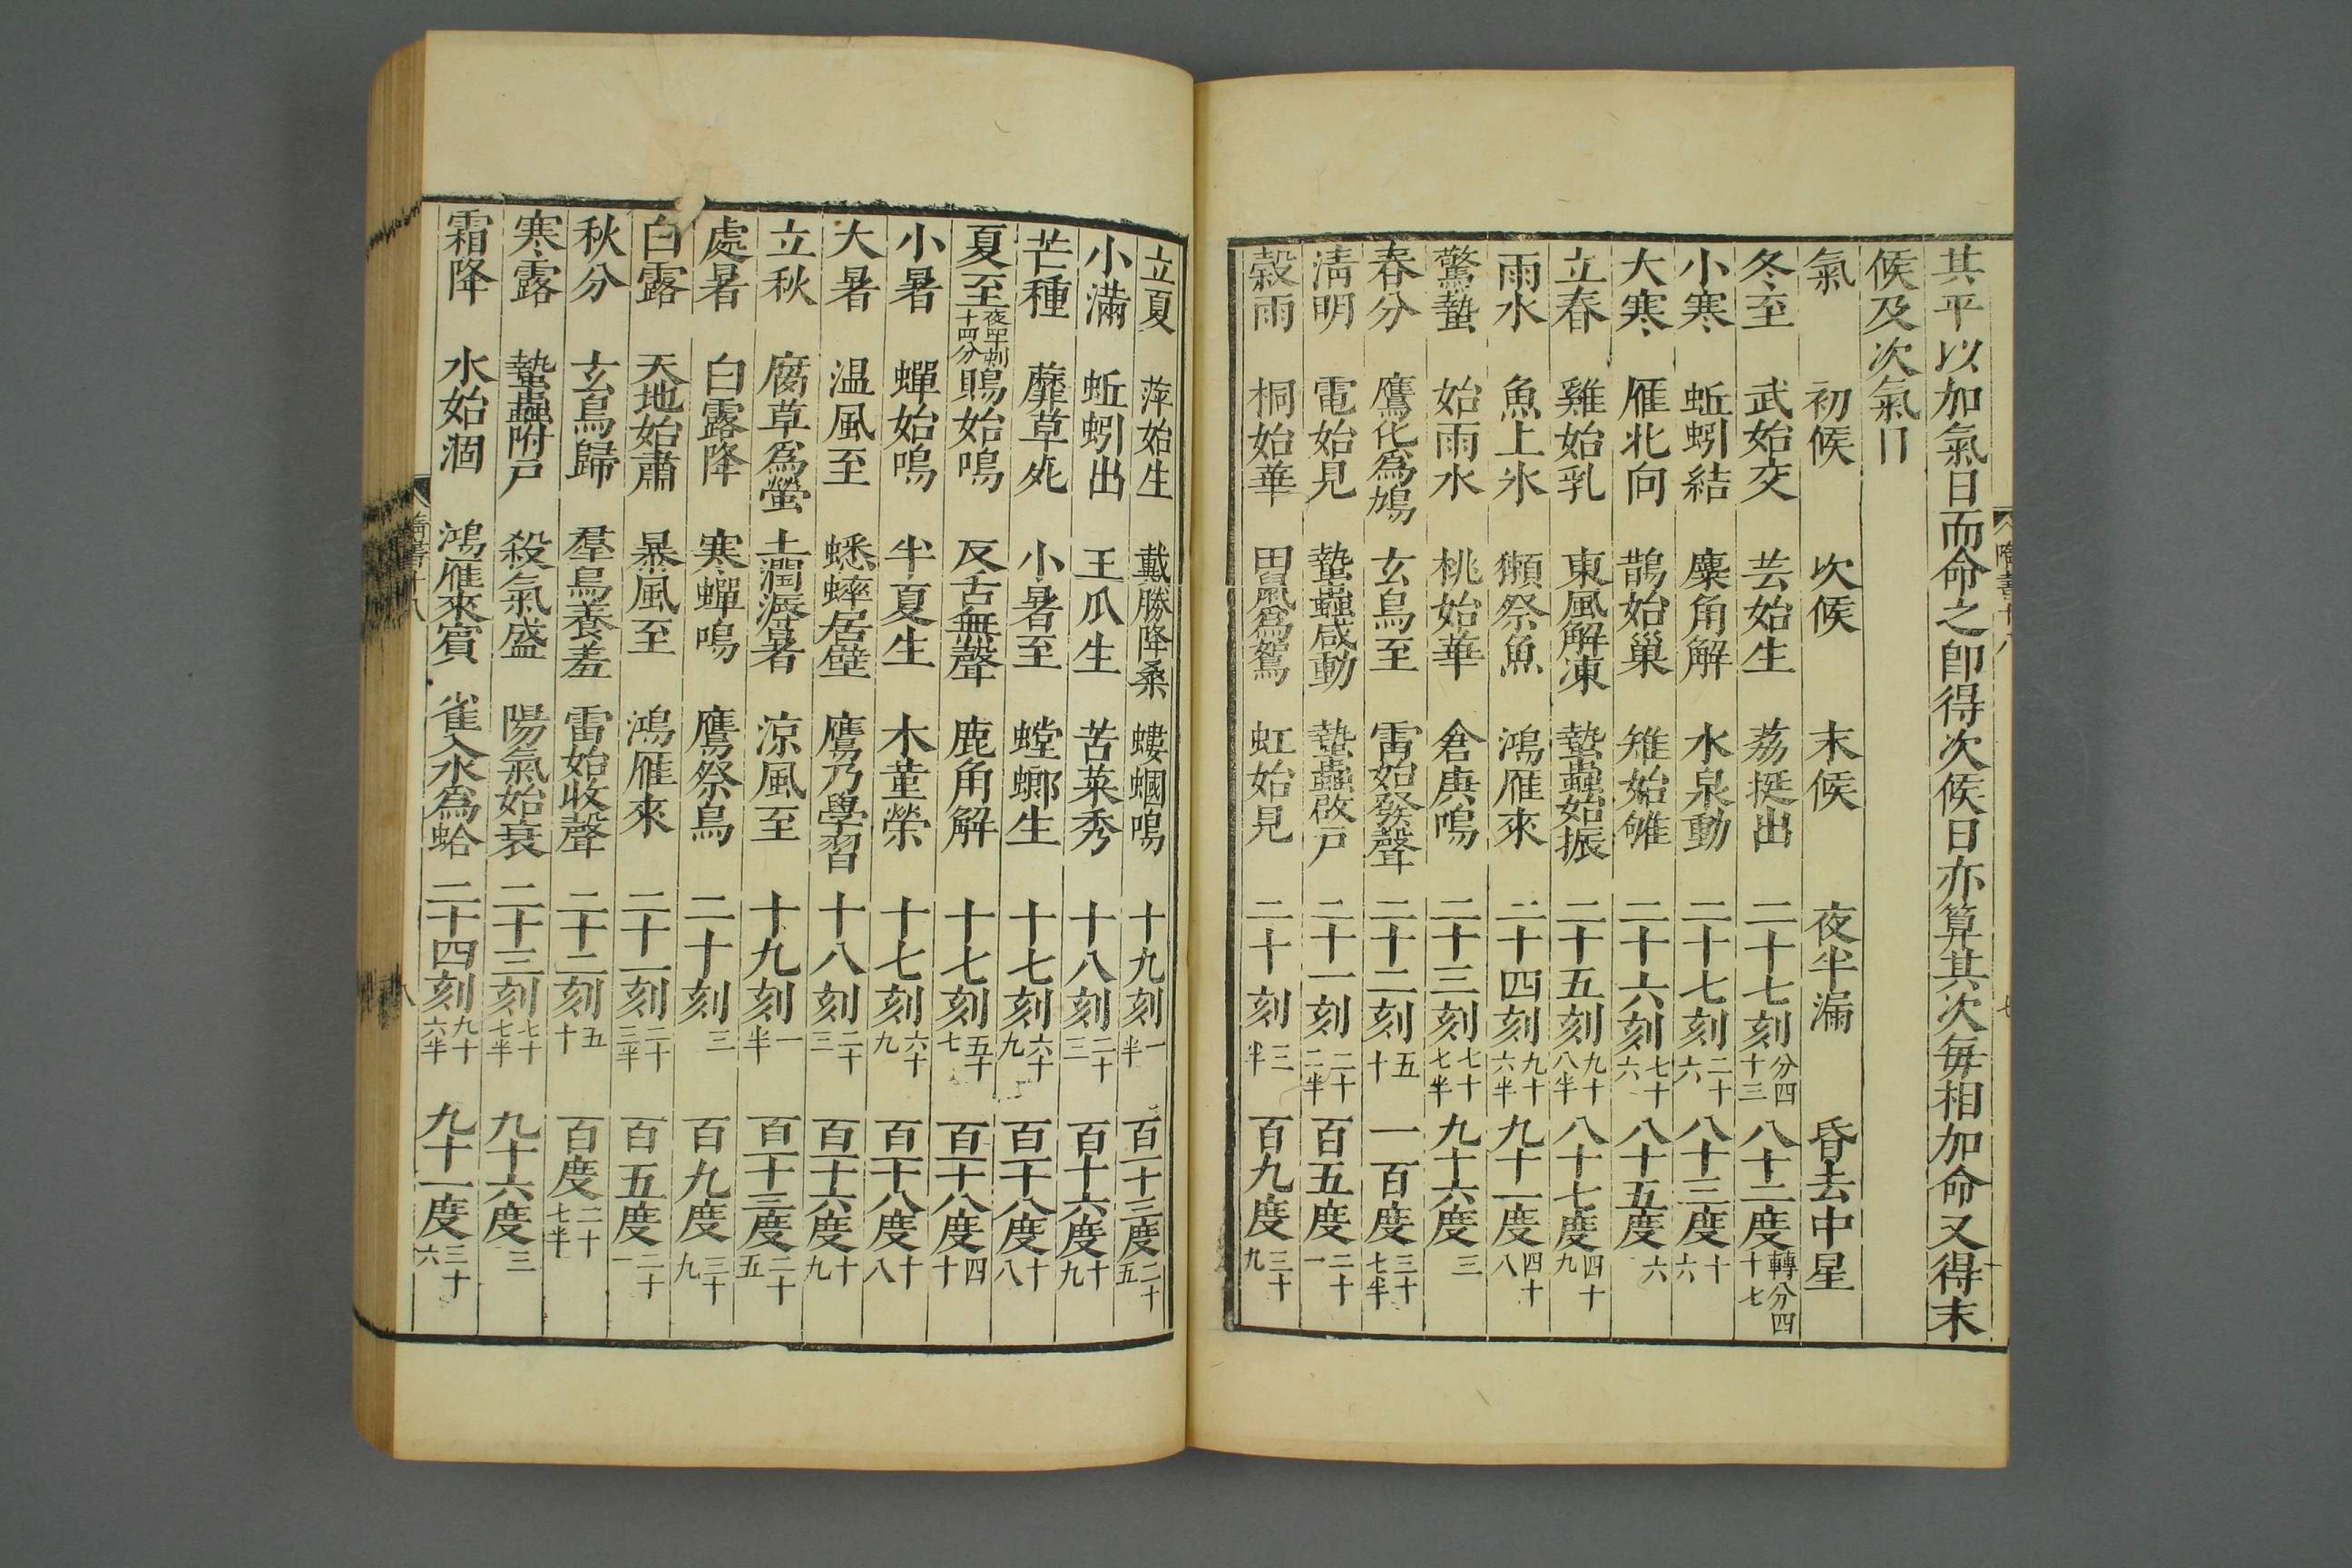 其平以加氣日而命之即得次候日亦算其次每相加命又得末
候及次氣日
氣 初候 次候 末候 夜半漏 昏去中星
冬至 武始交 芸始生 荔挺出 二十七刻分四十三 八十二度轉分四十七
小寒 蚯蚓結 麋角解 水泉動 二十七刻二十六 八十三度十六
大寒 雁北向 鵲始巢 雉始雊 二十六刻七十六 八十五度六
立春 雞始乳 東風解凍 蟄蟲始振 二十五刻九十八半 八十七度四十九
雨水 魚上氷 獺祭魚 鴻雁來 二十四刻九十六半 九十一度四十八
驚蟄 始雨水 桃始華 倉庚鳴 二十三刻七十七半 九十六度三
春分 鷹化爲鳩 玄鳥至 雷始發聲 二十二刻五十 一百度三十七半
淸明 電始見 蟄蟲咸動 蟄蟲啟戸 二十一刻二十二半 百五度二十一
穀雨 桐始華 田鼠爲鴽 虹始見 二十刻三半 百九度三十九
隋書十八
七
立夏 萍始生 戴勝降桑 螻蟈鳴 十九刻一半 百一十三度二十五
小滿 蚯蚓出 王瓜生 苦菜秀 十八刻二十三 百一十六度十九
芒種 蘼草死 小暑至 螳螂生 十七刻六十九 百一十八度十八
夏至夜四十刻十四分 鵙始鳴 反舌無聲 鹿角解 十七刻五十七 百一十八度四十
小暑 蟬始鳴 半夏生 木菫榮 十七刻六十九 百一十八度十八
大暑 温風至 蟋蟀居壁 鷹乃學習 十八刻二十三 百一十六度十九
立秋 腐草爲螢 土潤溽暑 涼風至 十九刻一半 百一十三度二十五
處暑 白露降 寒蟬鳴 鷹祭鳥 二十刻三 百九度三十九
白露 天地始肅 暴風至 鴻雁來 二十一刻二十三半 百五度二十一
秋分 玄鳥歸 羣鳥養羞 雷始收聲 二十二刻五十 百度二十七半
寒露 蟄蟲附戸 殺氣盛 陽氣始衰 二十三刻七十七半 九十六度三
霜降 水始涸 鴻雁來賓 雀入水爲蛤 二十四刻九十六半 九十一度三十六
隋書十八
八